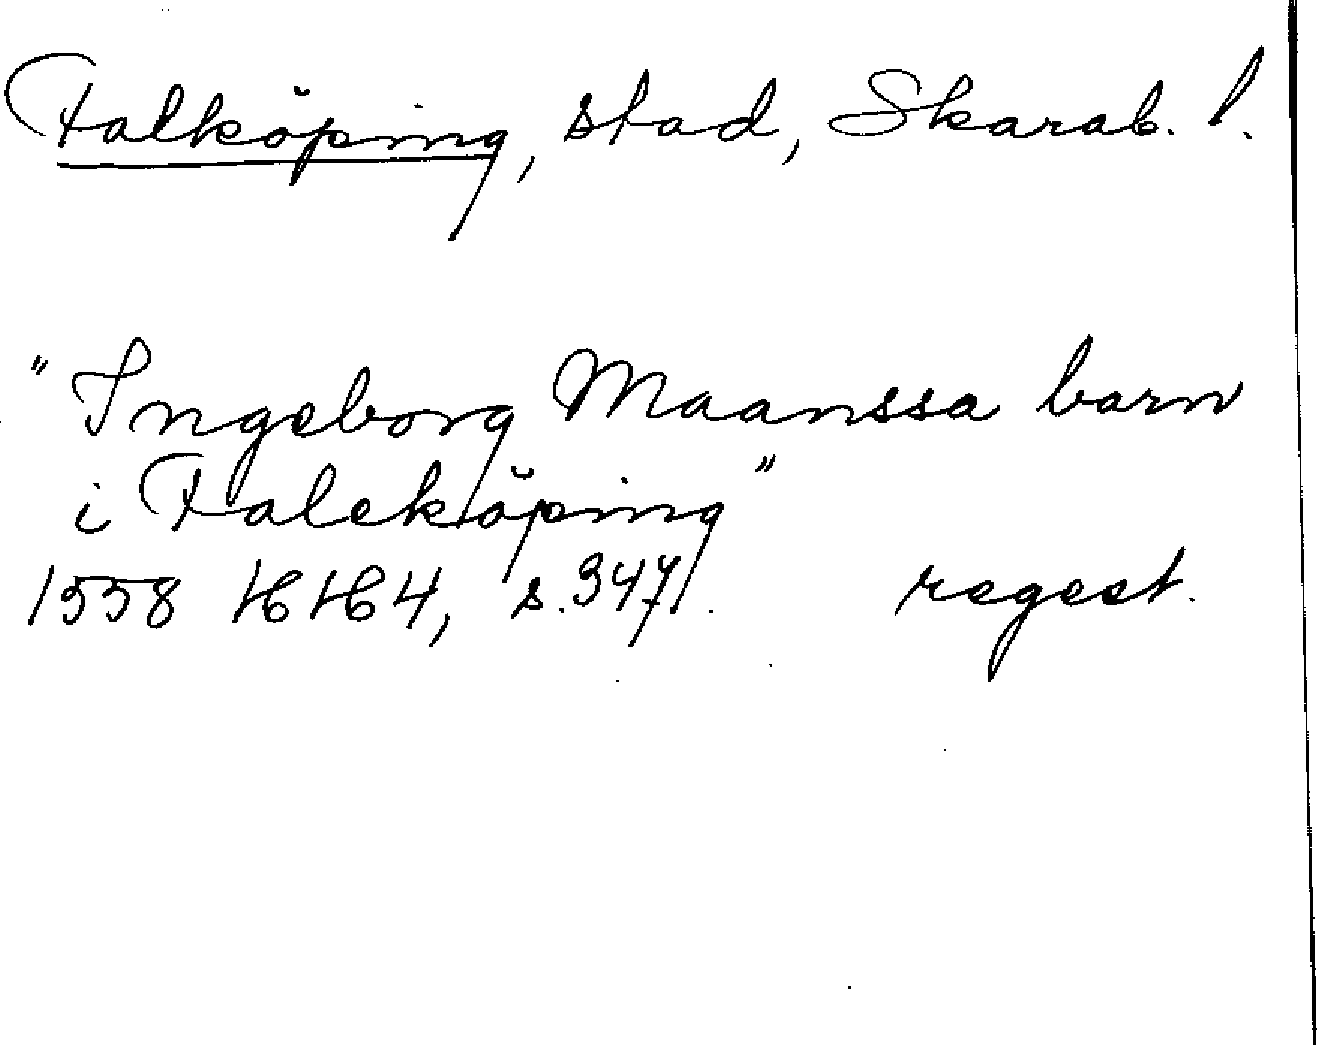 Falköping, stad, Skarab. l.
"Ingeborg Maanssa barn
i Faleköping"
1558 HH 4, s. 347. regest.